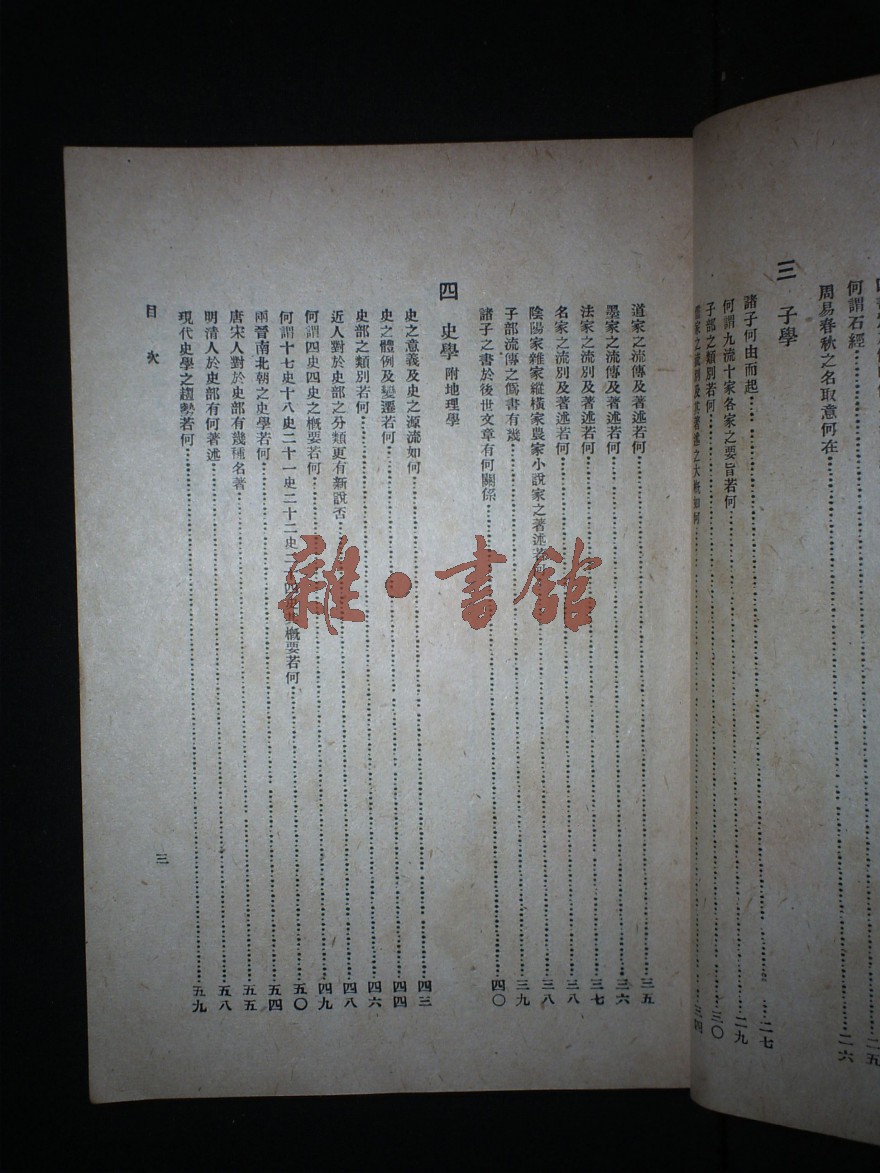 何謂石經
周易春秋之名取意何在……二六
三 子學
諸子何由而起……二七
何謂九流十家各家之要旨若何……二九
子部之類別若何……三〇
三四
道家之流傳及著述若何……三五
墨家之流傳及著述若何……三六
法家之流別及著述若何……三七
名家之流別及著述若何……三八
陰陽家雜家縱橫家農家小說家之著述若何……三八
子部流傳之僞書有幾……三九
諸子之書於後世文章有何關係……四〇
四 史學 附地理學
史之意義及史之源流如何……四三
史之體例及變遷若何……四四
史部之類別若何……四六
近人對於史部之分類更有新說否……四八
何謂四史四史之概要若何……四九
何謂十七史十八史二十一史二十二史二十四史其概要若何……五〇
兩晉南北朝之史學若何……五四
唐宋人對於史部有幾種名著……五五
明清人於史部有何著述……五八
現代史學之趨勢若何……五九
目次
三
雜·書館